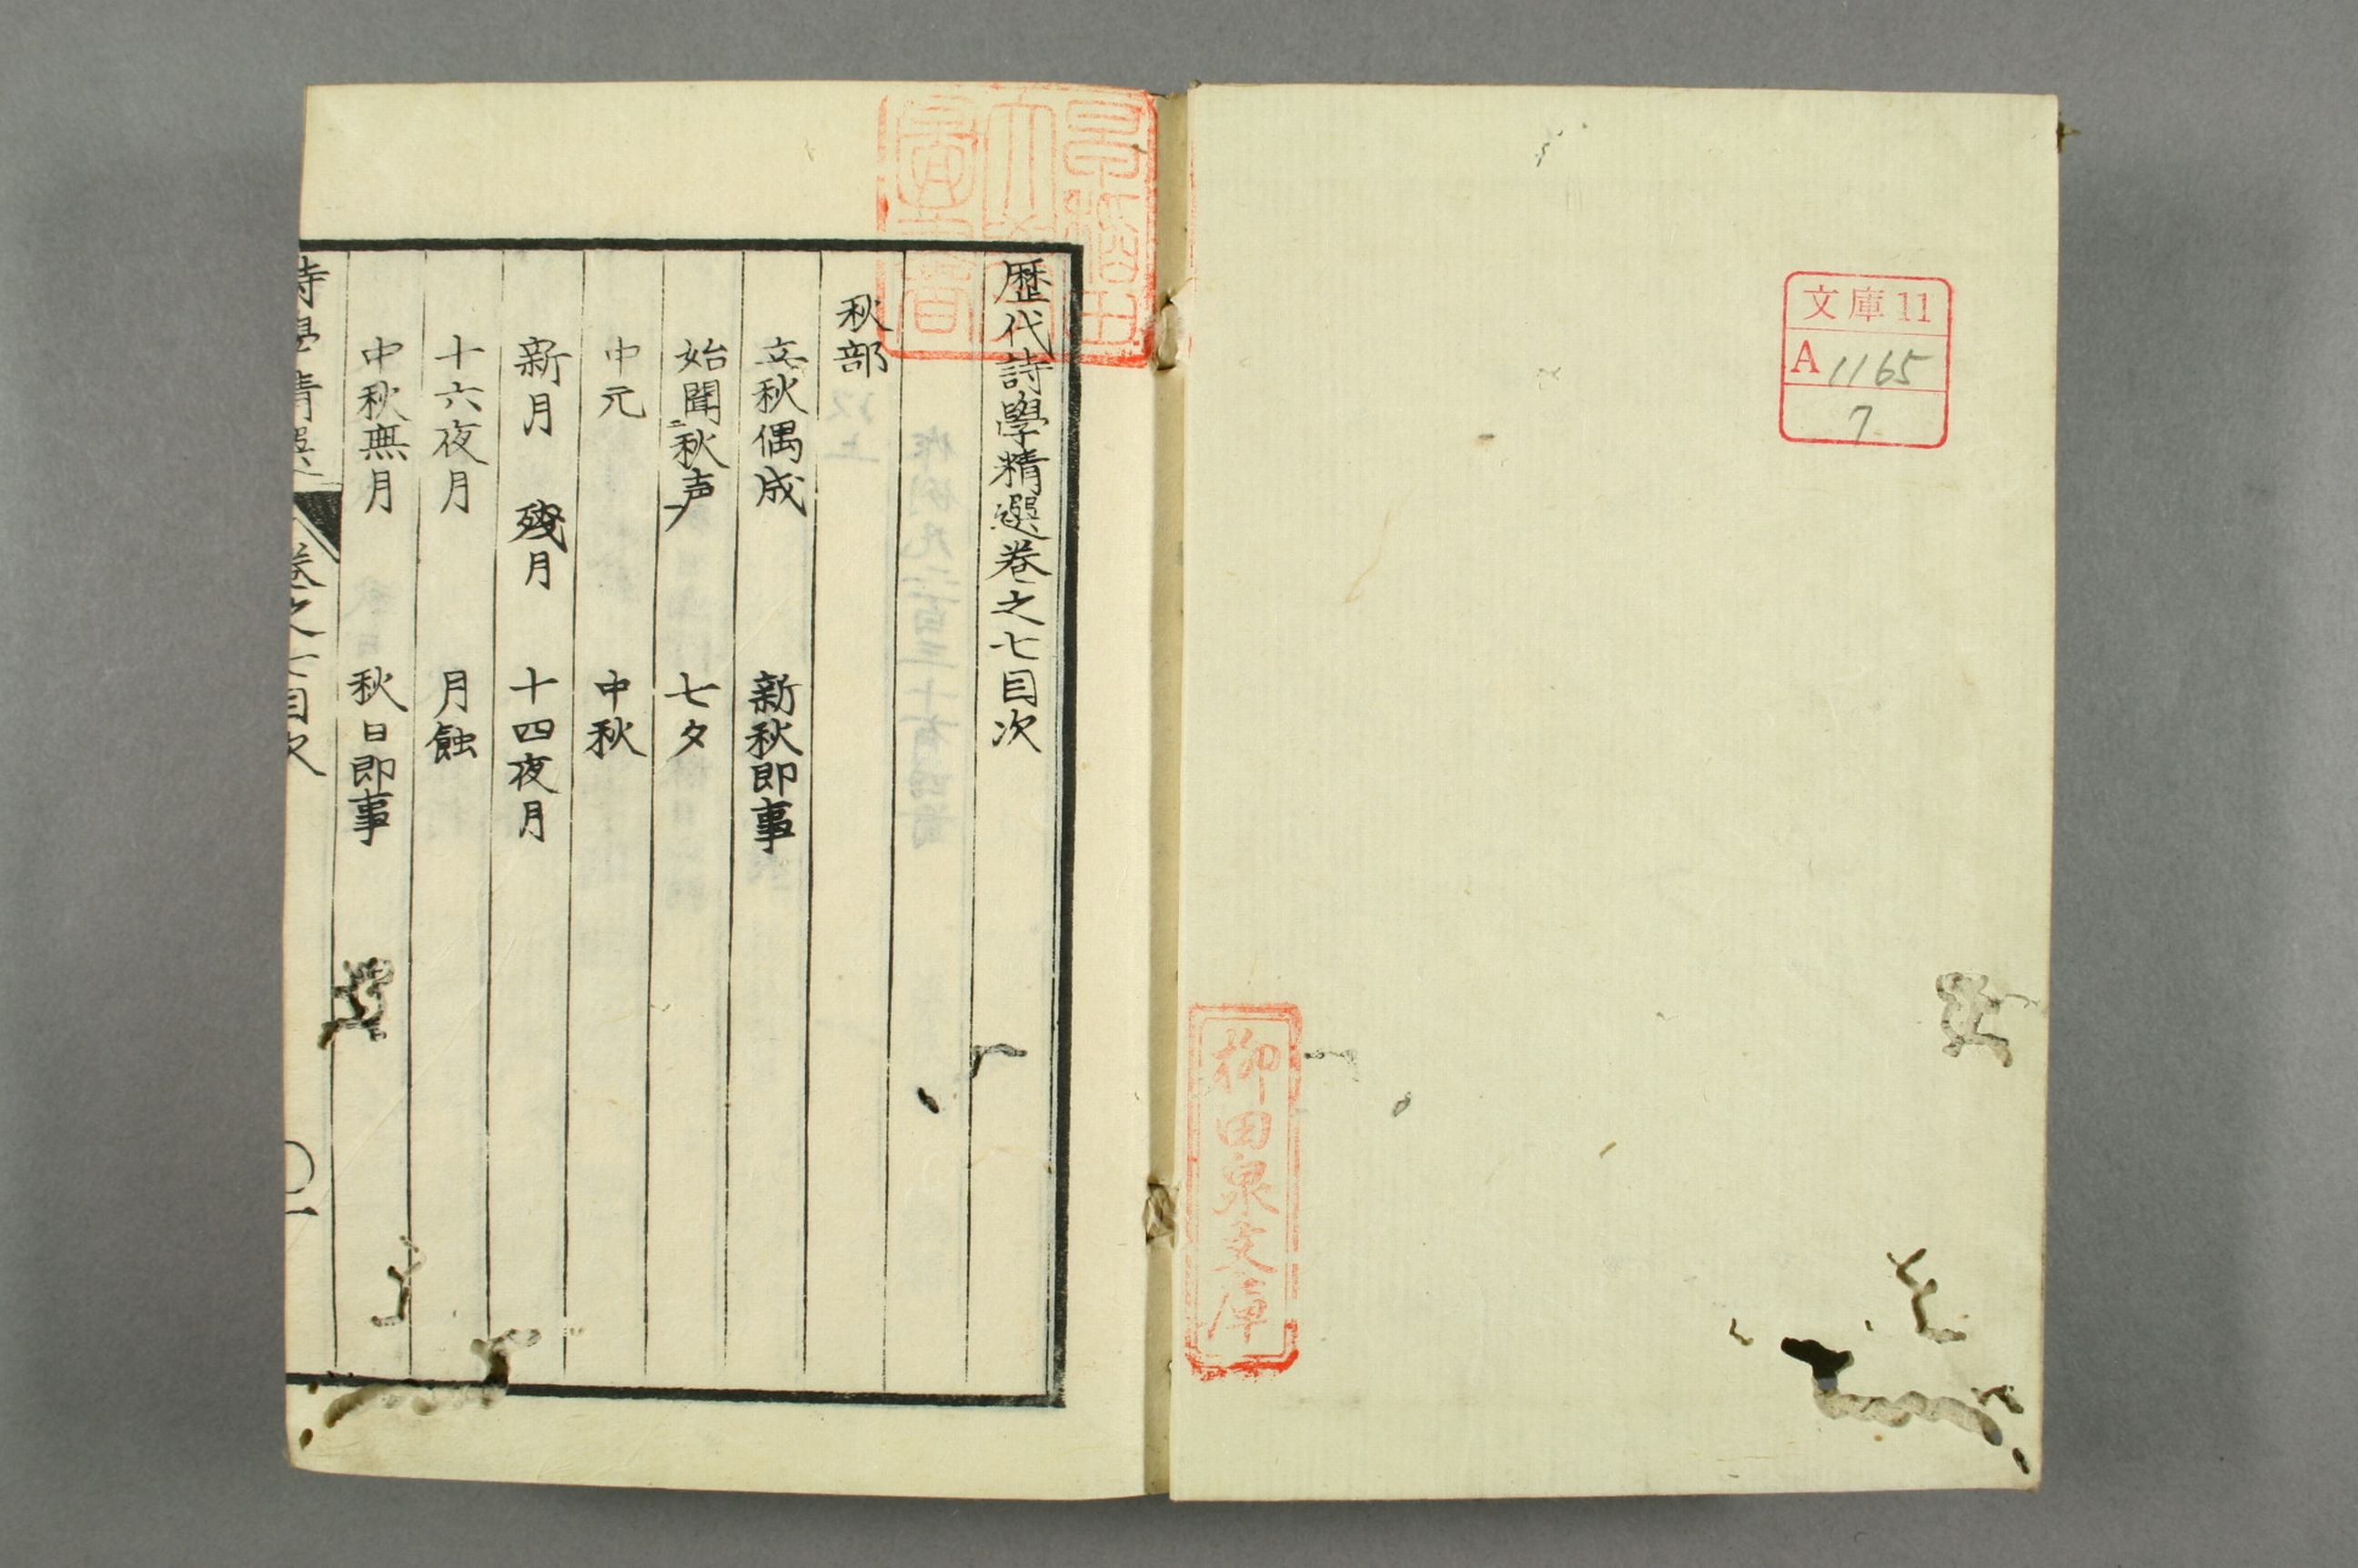 文庫11
A1165
7
柳田泉文庫
早稲田
大學
圖書
歴代詩學精選巻之七目次
秋部
立秋偶成 新秋即事
始聞二秋声一 七夕
中元 中秋
新月 殘月 十四夜月
十六夜月 月蝕
中秋無月 秋日即事
詩學精選 巻之七目次 一